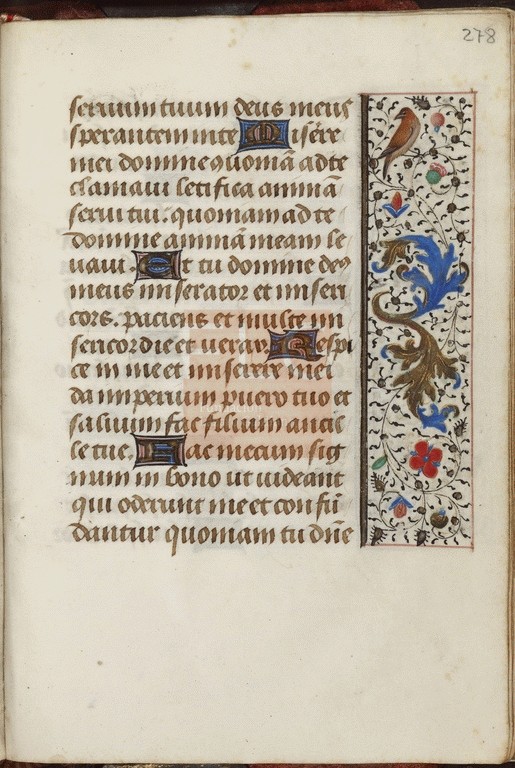 278
seruum tuum deus meus
sperantem in te Misere
mei domine quoniā ad te
clamaui letifica animā
serui tui: quoniam ad te
domine animā meam le
uaui. Et tu domine deꝰ
meus miserator et miseri
cors. paciens et multe mi
sericordie et uerax. Respi
ce in me et miserere mei
da imperium puero tuo et
saluum fac filium ancil
le tue. Fac mecum sig
num in bono ut uideant
qui oderunt me et confū
dantur quoniam tu dn̄e